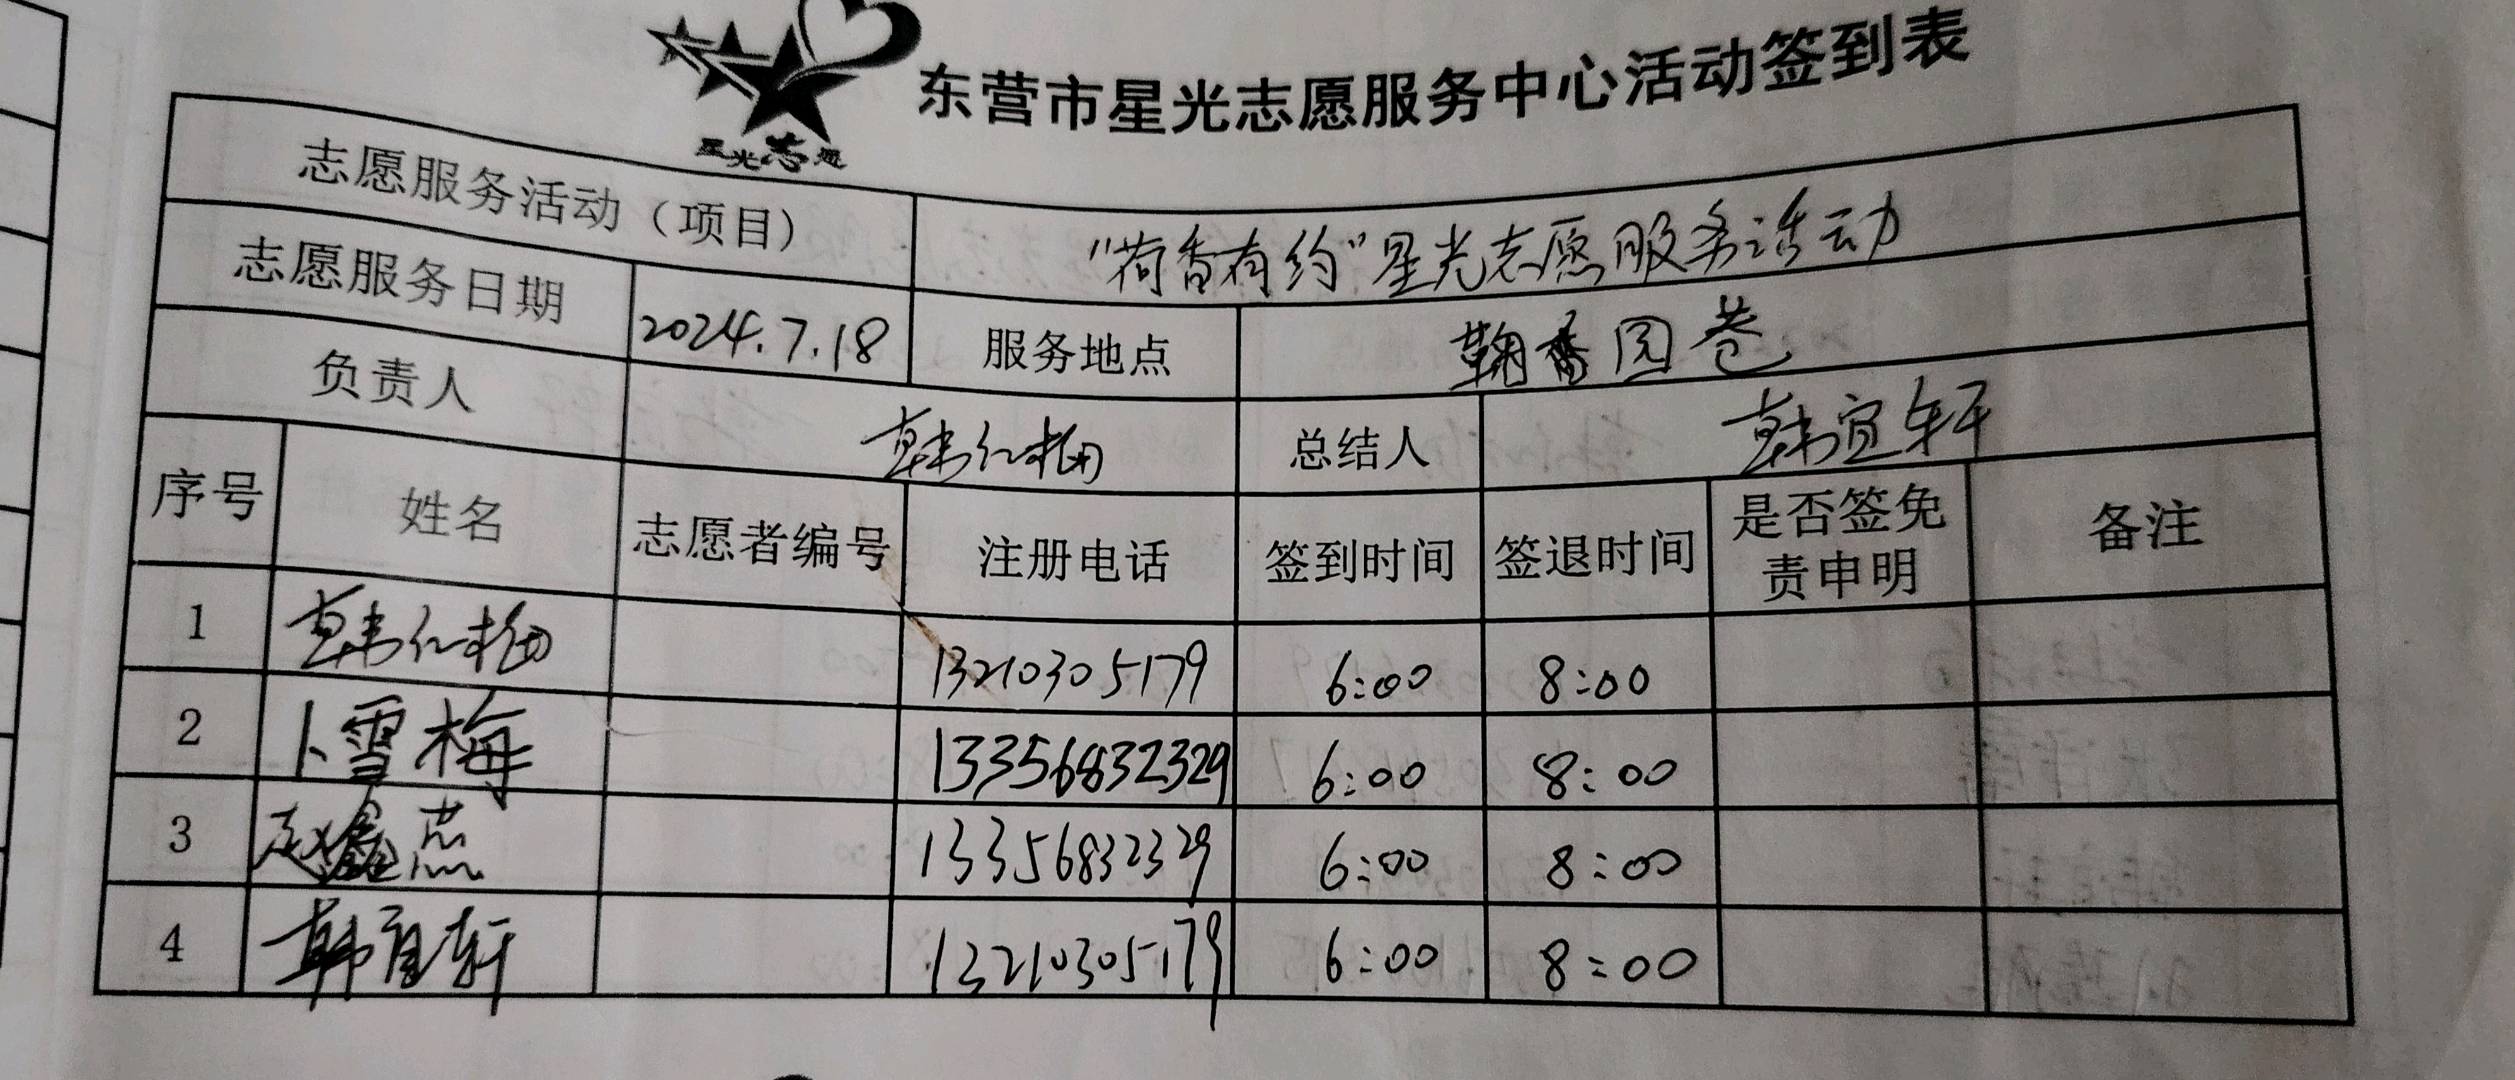 星光志愿
东营市星光志愿服务中心活动签到表
志愿服务活动（项目） “荷香有约”星光志愿服务活动
志愿服务日期 2024.7.18 服务地点 香园巷
负责人 韩红梅 总结人 韩宜轩
序号 姓名 志愿者编号 注册电话 签到时间 签退时间 是否签免责申明 备注
1 韩红梅 13210305179 6:00 8:00
2 卜雪梅 13356832329 6:00 8:00
3 赵鑫燕 13356832329 6:00 8:00
4 韩宜轩 13210305179 6:00 8:00